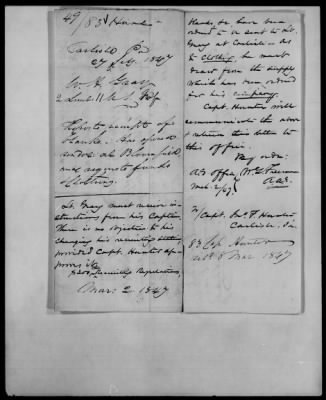 49/83 Hunter
Carlisle Pa
27 Feby. 1847
W. H. Gray
2 Lieut 11 U.S. Inf
Reports receipt of
blanks. Has opened
rendez. at Bloomfield
and requests funds
Clothing.
Lt. Gray must receive in-
structions from his Captain.
There is no objection to his
changing his recruiting station
provided Capt. Hunter ap-
proves it.
Recruiting Regulations,
Mar: 2. 1847
blanks to have been
ordered to be sent to Lt.
Gray at Carlisle. As
to Clothing, he must
draw from the supply
which has been ordered
for his company.
Capt. Hunter will
communicate the above
& return this letter to
this office.
By order:
A.G. Office W. G. Freeman
Mch 2/47 A.A.G.
To/Capt. Hunter
Carlisle, Pa.
83 Cap Hunter
recd 8 Mar 1847